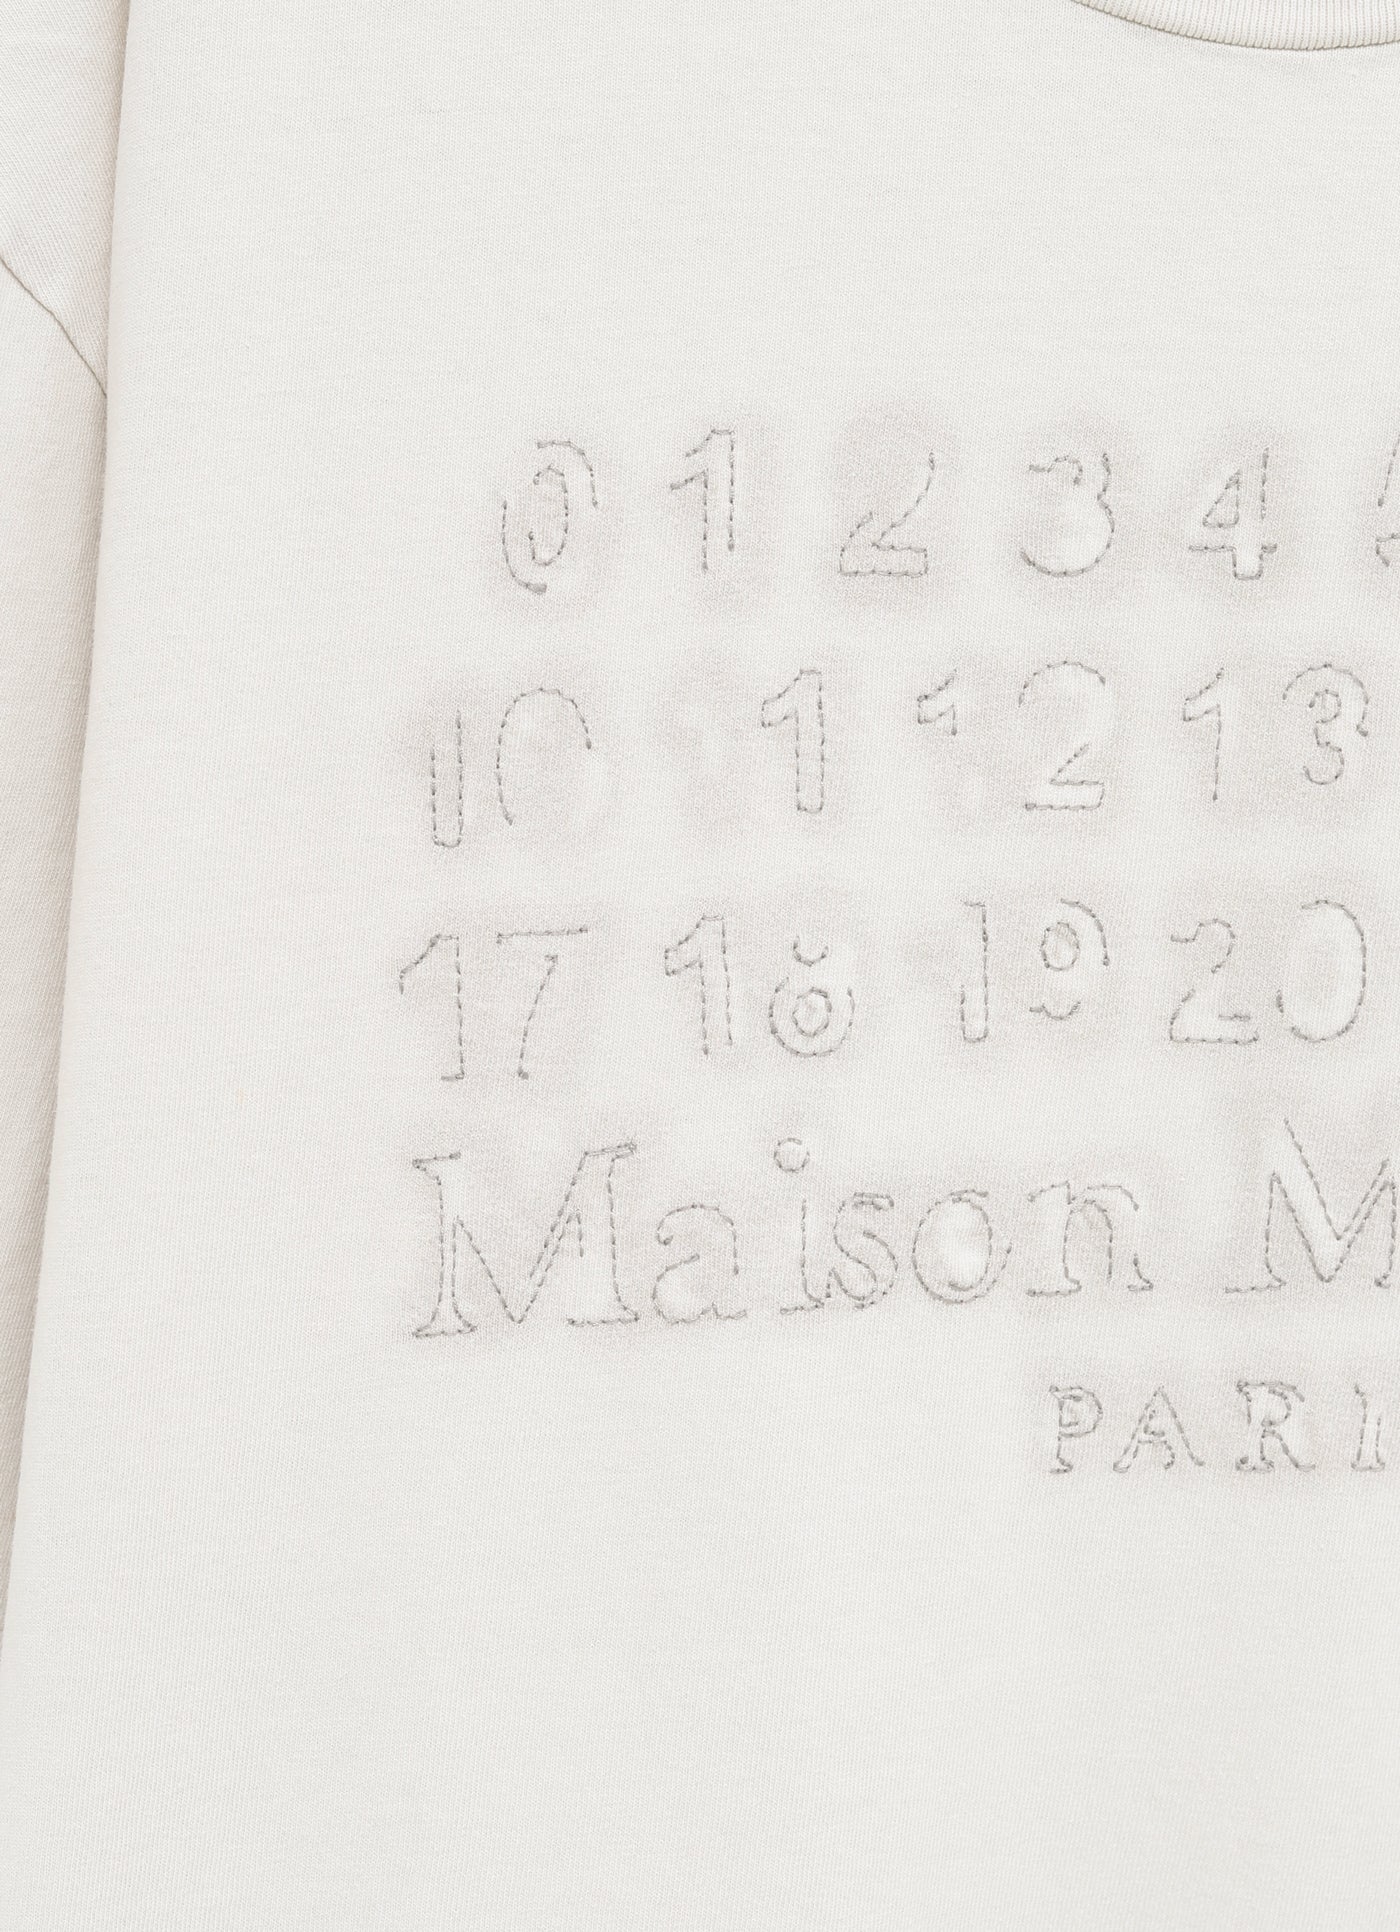 0 1 2 3 4 5
10 11 12 13
17 18 19 20
Maison M
PARI